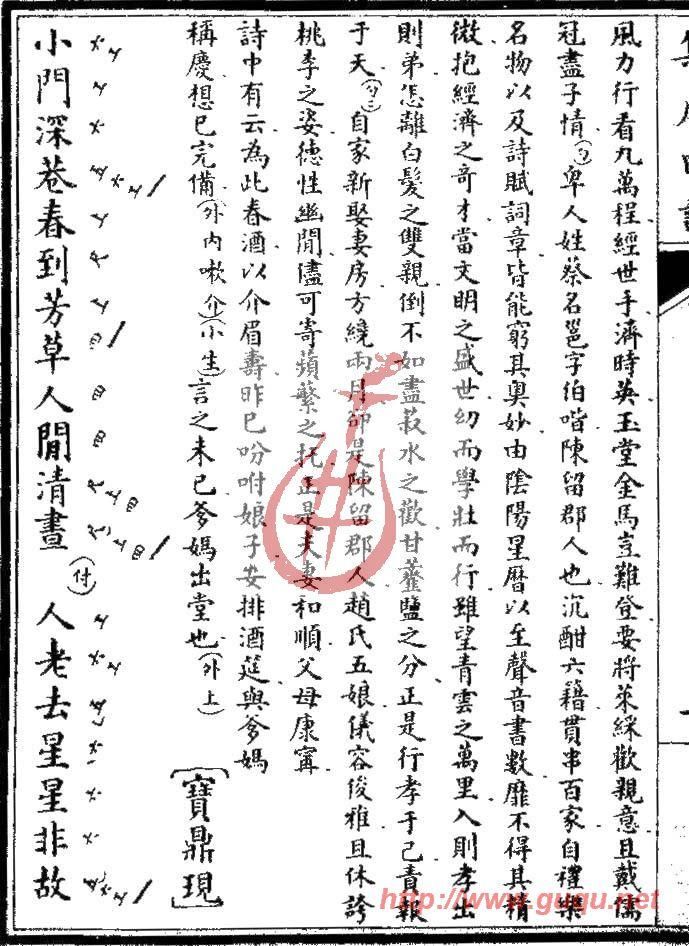 風力行看九萬程經世手濟時英玉堂金馬豈難登要將萊綵歡親意且戴儒
冠盡子情(白)卑人姓蔡名邕字伯喈陳留郡人也沉酣六籍貫串百家自禮樂
名物以及詩賦詞章皆能窮其奥妙由陰陽星曆以至聲音書數靡不得其精
微抱經濟之奇才當文明之盛世幼而學壯而行雖望青雲之萬里入則孝出
則弟怎離白髮之雙親倒不如盡菽水之歡甘虀鹽之分正是行孝于己責報
于天(白三)自家新娶妻房方纔兩月卻是陳留郡人趙氏五娘儀容俊雅且休誇
桃李之姿德性幽閒儘可寄蘋蘩之托正是夫妻和順父母康寗
詩中有云為此春酒以介眉壽昨已吩咐娘子安排酒筵與爹媽
稱慶想已完備(外內嗽介)(小生)言之未已爹媽出堂也(外上)[寶鼎現]
小門深巷春到芳草人閒清晝(付)人老去星星非故
http://www.guqu.net